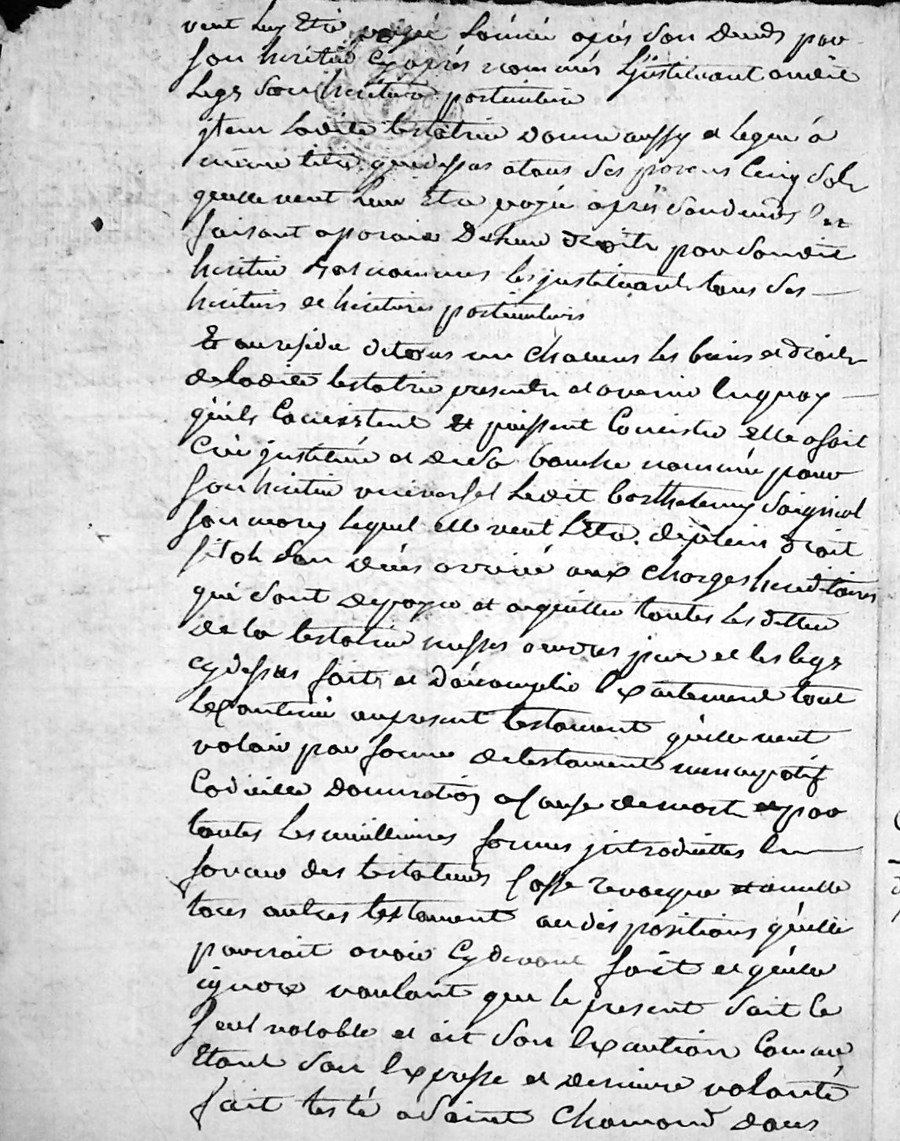 veut luy Etre payée l'année après Son deceds par
Son heritier Cy après nommés L'jnstituant audit
Legs Son heritiere particuliere
jtem Ladite testatrice donne aussy et legue à
même titre que dessus atous Ses parens Cinq Sols
quelle veut Leur Etre payée après Son deceds et
faisant aparoir de Leur droits par Sondit
heritier nommes les jnstituant tous Ses
heritiers et heritieres particuliers
Et au residu de tous un Chacuns Les biens et droits
de Ladite testatrice presents et avenir Enquoy
qu'ils Consistent Et puissent Consister Elle a fait
Créé jnstitué et de Sa bouche nommé pour
Son heritier universel Ledit barthelemy Soignol
Son mary lequel elle veut L'Etre de plein droit
Sitot Son décès arrivé aux Charges hereditaires
qui Sont de payer et aquitter toutes Les dettes
de La testatrice messes œuvres pies et les legs
cy dessus faits et d'acomplir Exactement tout
Le Contenu au present testament quelle veut
valoir par forme de testament nuncupatif
Codicille donnation a Cause de mort et par
toutes Les meilleures formes jntroduittes En
faveur des testateurs Casse revoque et annulle
tous autres testament ou dispositions qu'elle
pouvroit avoir Cy devant fait et qu'elle
ignore voulant que le present Soit le
Seul valable et ait Son Exécution Comme
Etant Son Expresse et derniere volonté
fait testé a Saint Chamond dans